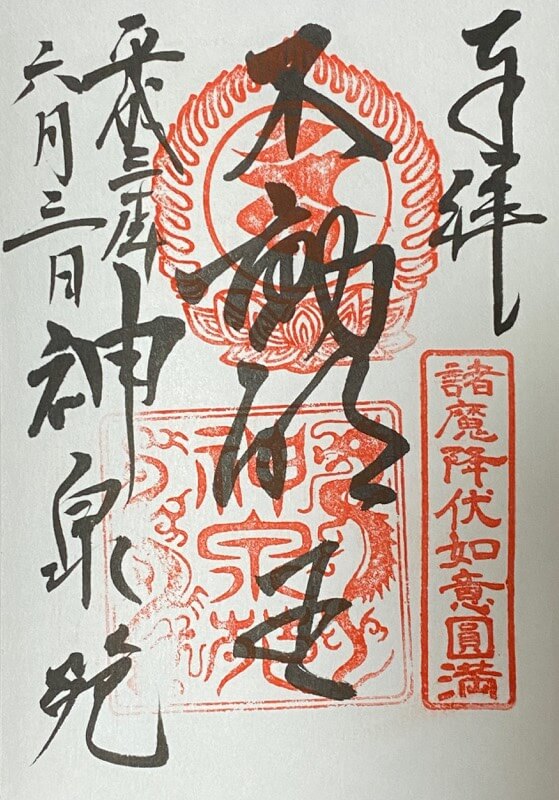 奉拝
諸魔降伏如意圓満
不動明王
神泉苑
平成
六月三日
神泉苑